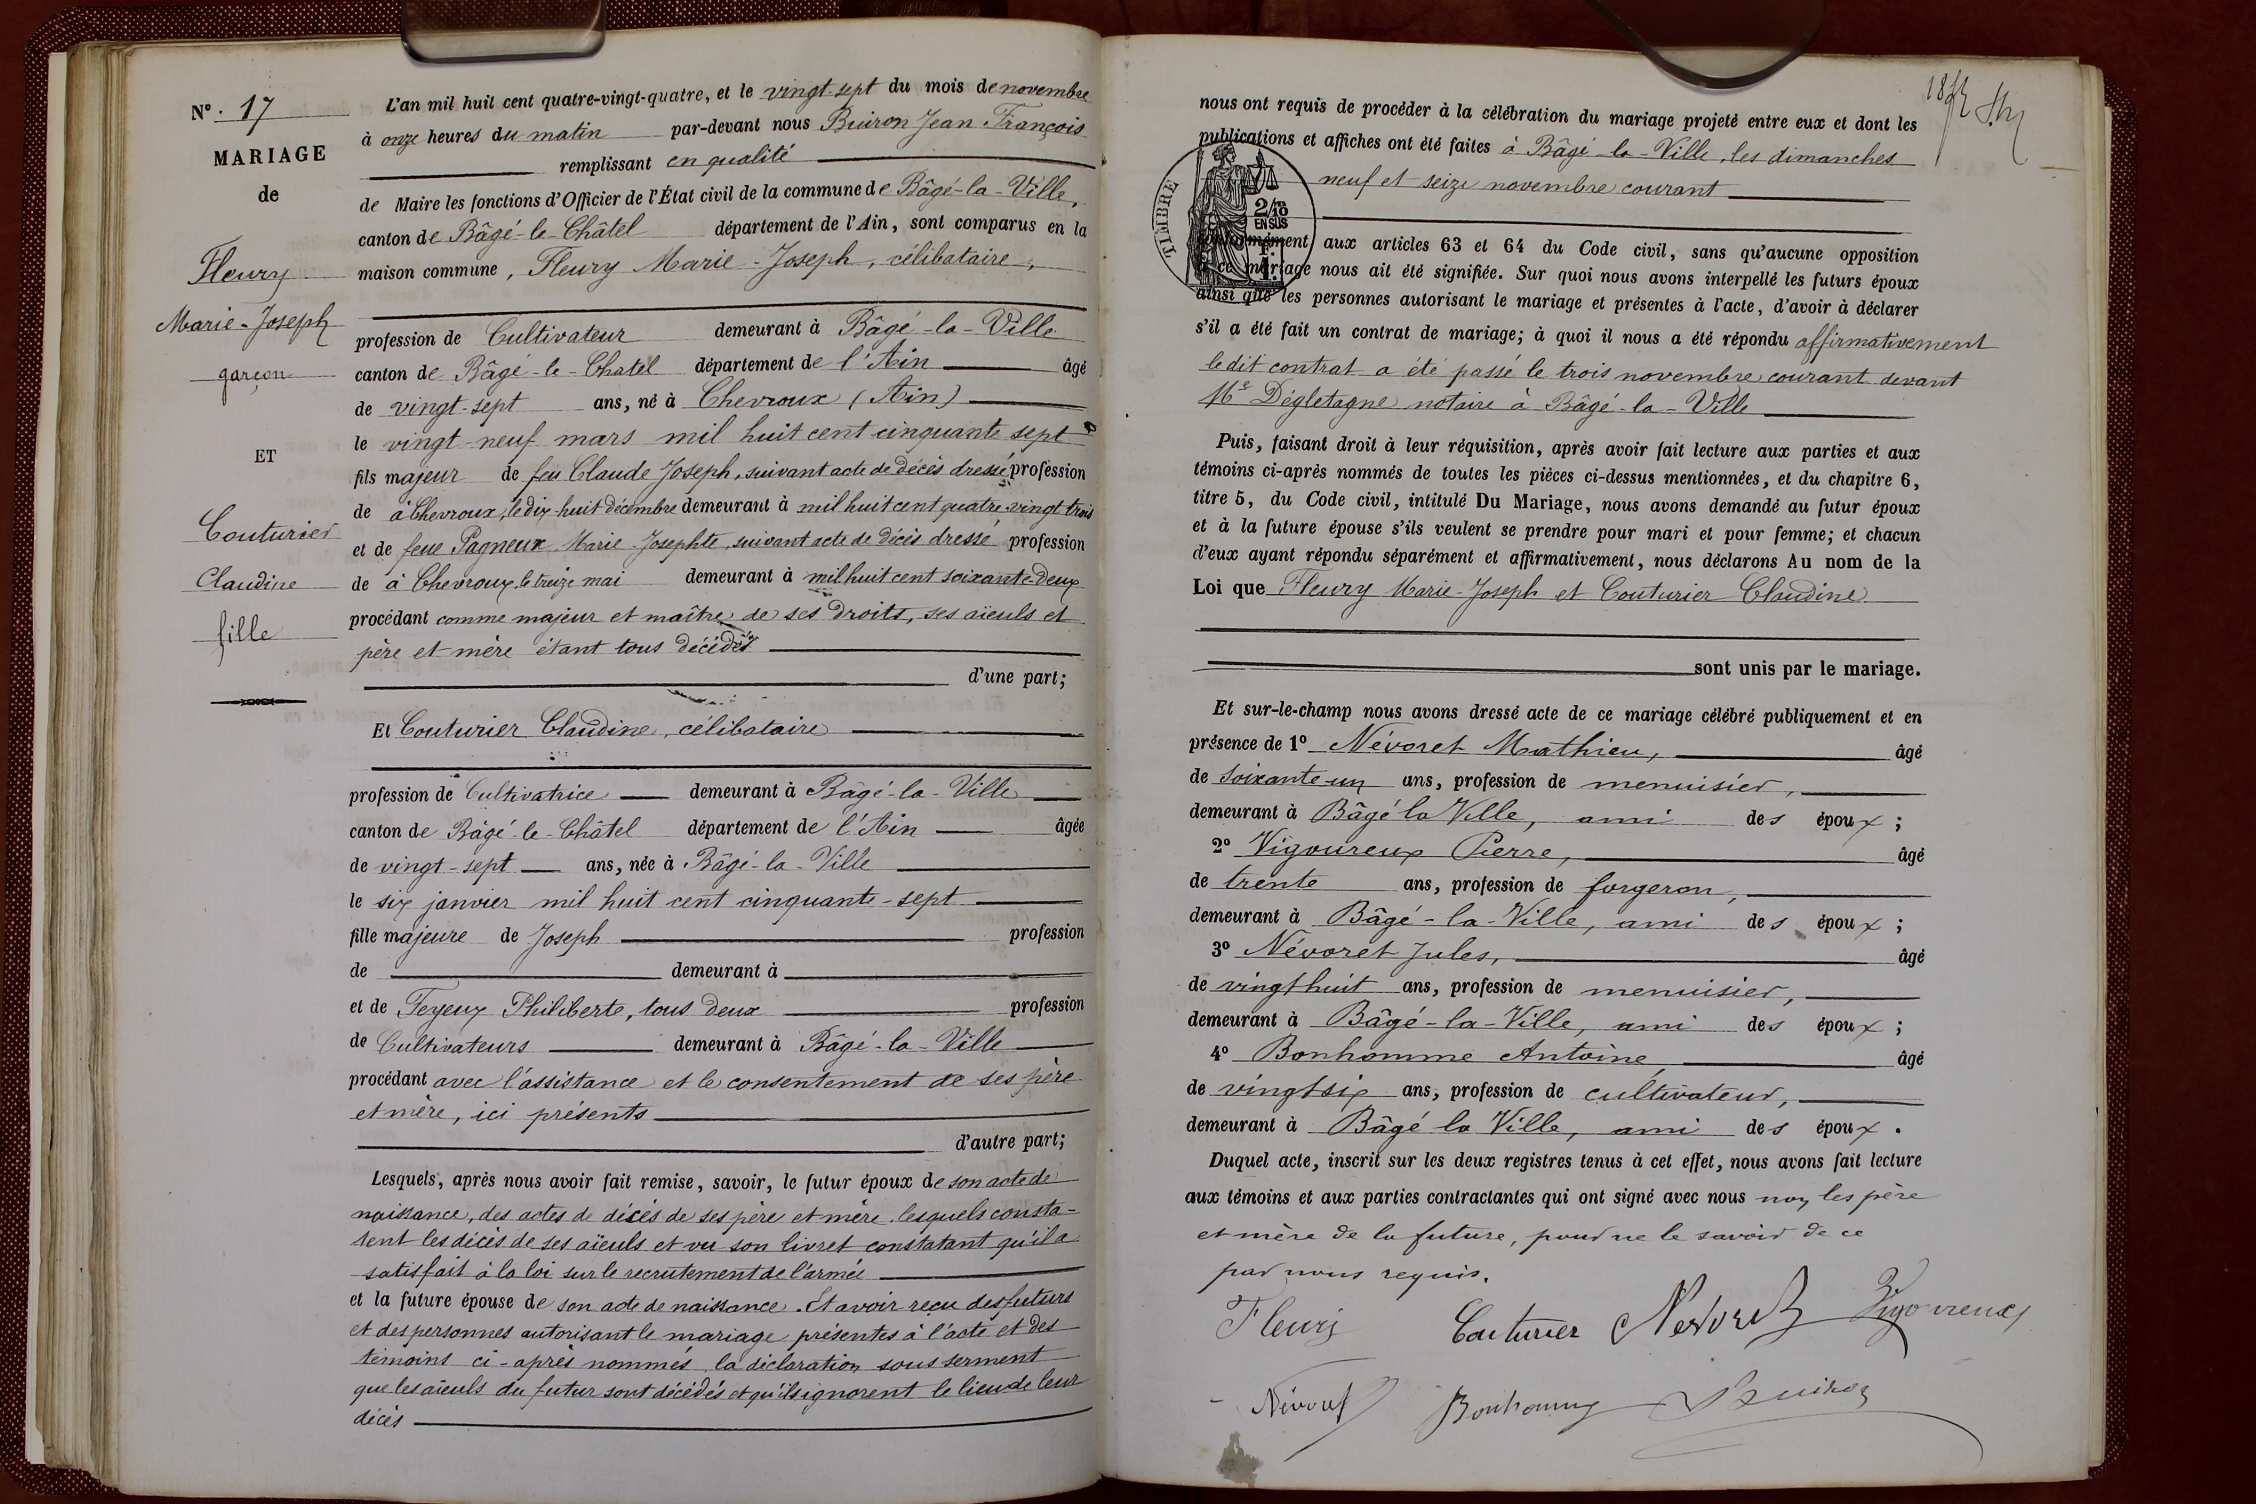 N° . 17
MARIAGE
de
Fleury
Marie-Joseph
garçon
ET
Couturier
Claudine
fille
L'an mil huit cent quatre-vingt-quatre, et le vingt-sept du mois de novembre
à onze heures du matin par-devant nous Buiron Jean François
remplissant en qualité
de Maire les fonctions d'Officier de l'État civil de la commune de Bâgé-la-Ville,
canton de Bâgé-le-Châtel département de l'Ain, sont comparus en la
maison commune, Fleury Marie-Joseph, célibataire,
profession de Cultivateur demeurant à Bâgé-la-Ville
canton de Bâgé-le-Chatel département de l'Ain âgé
de vingt-sept ans, né à Chevroux (Ain)
le vingt-neuf mars mil huit cent cinquante sept
fils majeur de feu Claude Joseph, suivant acte de décès dressé profession
de à Chevroux, le dix-huit décembre demeurant à mil huit cent quatre-vingt trois
et de feue Pagneux Marie-Josephte, suivant acte de décès dressé profession
de à Chevroux, le treize mai demeurant à mil huit cent soixante-deux
procédant comme majeur et maître de ses droits, ses aïeuls et
père et mère étant tous décédés
d'une part;
Et Couturier Claudine, célibataire
profession de Cultivatrice demeurant à Bâgé-la-Ville
canton de Bâgé-le-Châtel département de l'Ain âgée
de vingt-sept ans, née à Bâgé-la-Ville
le six janvier mil huit cent cinquante-sept
fille majeure de Joseph profession
de demeurant à
et de Feyeux Philiberte, tous deux profession
de Cultivateurs demeurant à Bâgé-la-Ville
procédant avec l'assistance et le consentement de ses père
et mère, ici présents
d'autre part;
Lesquels, après nous avoir fait remise, savoir, le futur époux de son acte de
naissance, des actes de décès de ses père et mère, lesquels consta-
tent les décès de ses aïeuls et vu son livret constatant qu'il a
satisfait à la loi sur le recrutement de l'armée
et la future épouse de son acte de naissance. Et avoir reçu des futurs
et des personnes autorisant le mariage présentes à l'acte et des
témoins ci-après nommés la déclaration sous serment
que les aïeuls du futur sont décédés et qu'ils ignorent le lieu de leur
décès
nous ont requis de procéder à la célébration du mariage projeté entre eux et dont les
publications et affiches ont été faites à Bâgé-la-Ville, les dimanches
neuf et seize novembre courant
TIMBRE
2/10
EN SUS
conformément aux articles 63 et 64 du Code civil, sans qu'aucune opposition
à ce mariage nous ait été signifiée. Sur quoi nous avons interpellé les futurs époux
ainsi que les personnes autorisant le mariage et présentes à l'acte, d'avoir à déclarer
s'il a été fait un contrat de mariage; à quoi il nous a été répondu affirmativement
le dit contrat a été passé le trois novembre courant devant
Me Dégletagne notaire à Bâgé-la-Ville
Puis, faisant droit à leur réquisition, après avoir fait lecture aux parties et aux
témoins ci-après nommés de toutes les pièces ci-dessus mentionnées, et du chapitre 6,
titre 5, du Code civil, intitulé Du Mariage, nous avons demandé au futur époux
et à la future épouse s'ils veulent se prendre pour mari et pour femme; et chacun
d'eux ayant répondu séparément et affirmativement, nous déclarons Au nom de la
Loi que Fleury Marie-Joseph et Couturier Claudine
sont unis par le mariage.
Et sur-le-champ nous avons dressé acte de ce mariage célébré publiquement et en
présence de 1° Névoret Mathieu, âgé
de soixante-un ans, profession de menuisier,
demeurant à Bâgé la Ville, ami des époux ;
2° Vigoureux Pierre, âgé
de trente ans, profession de forgeron,
demeurant à Bâgé-la-Ville, ami des époux ;
3° Névoret Jules, âgé
de vingt huit ans, profession de menuisier,
demeurant à Bâgé-la-Ville, ami des époux ;
4° Bonhomme Antoine, âgé
de vingt six ans, profession de cultivateur,
demeurant à Bâgé la Ville, ami des époux .
Duquel acte, inscrit sur les deux registres tenus à cet effet, nous avons fait lecture
aux témoins et aux parties contractantes qui ont signé avec nous non les père
et mère de la future, pour ne le savoir de ce
par nous requis.
Fleury Couturier Nevoret Vigoureux
Névoret Bonhomme Buiron